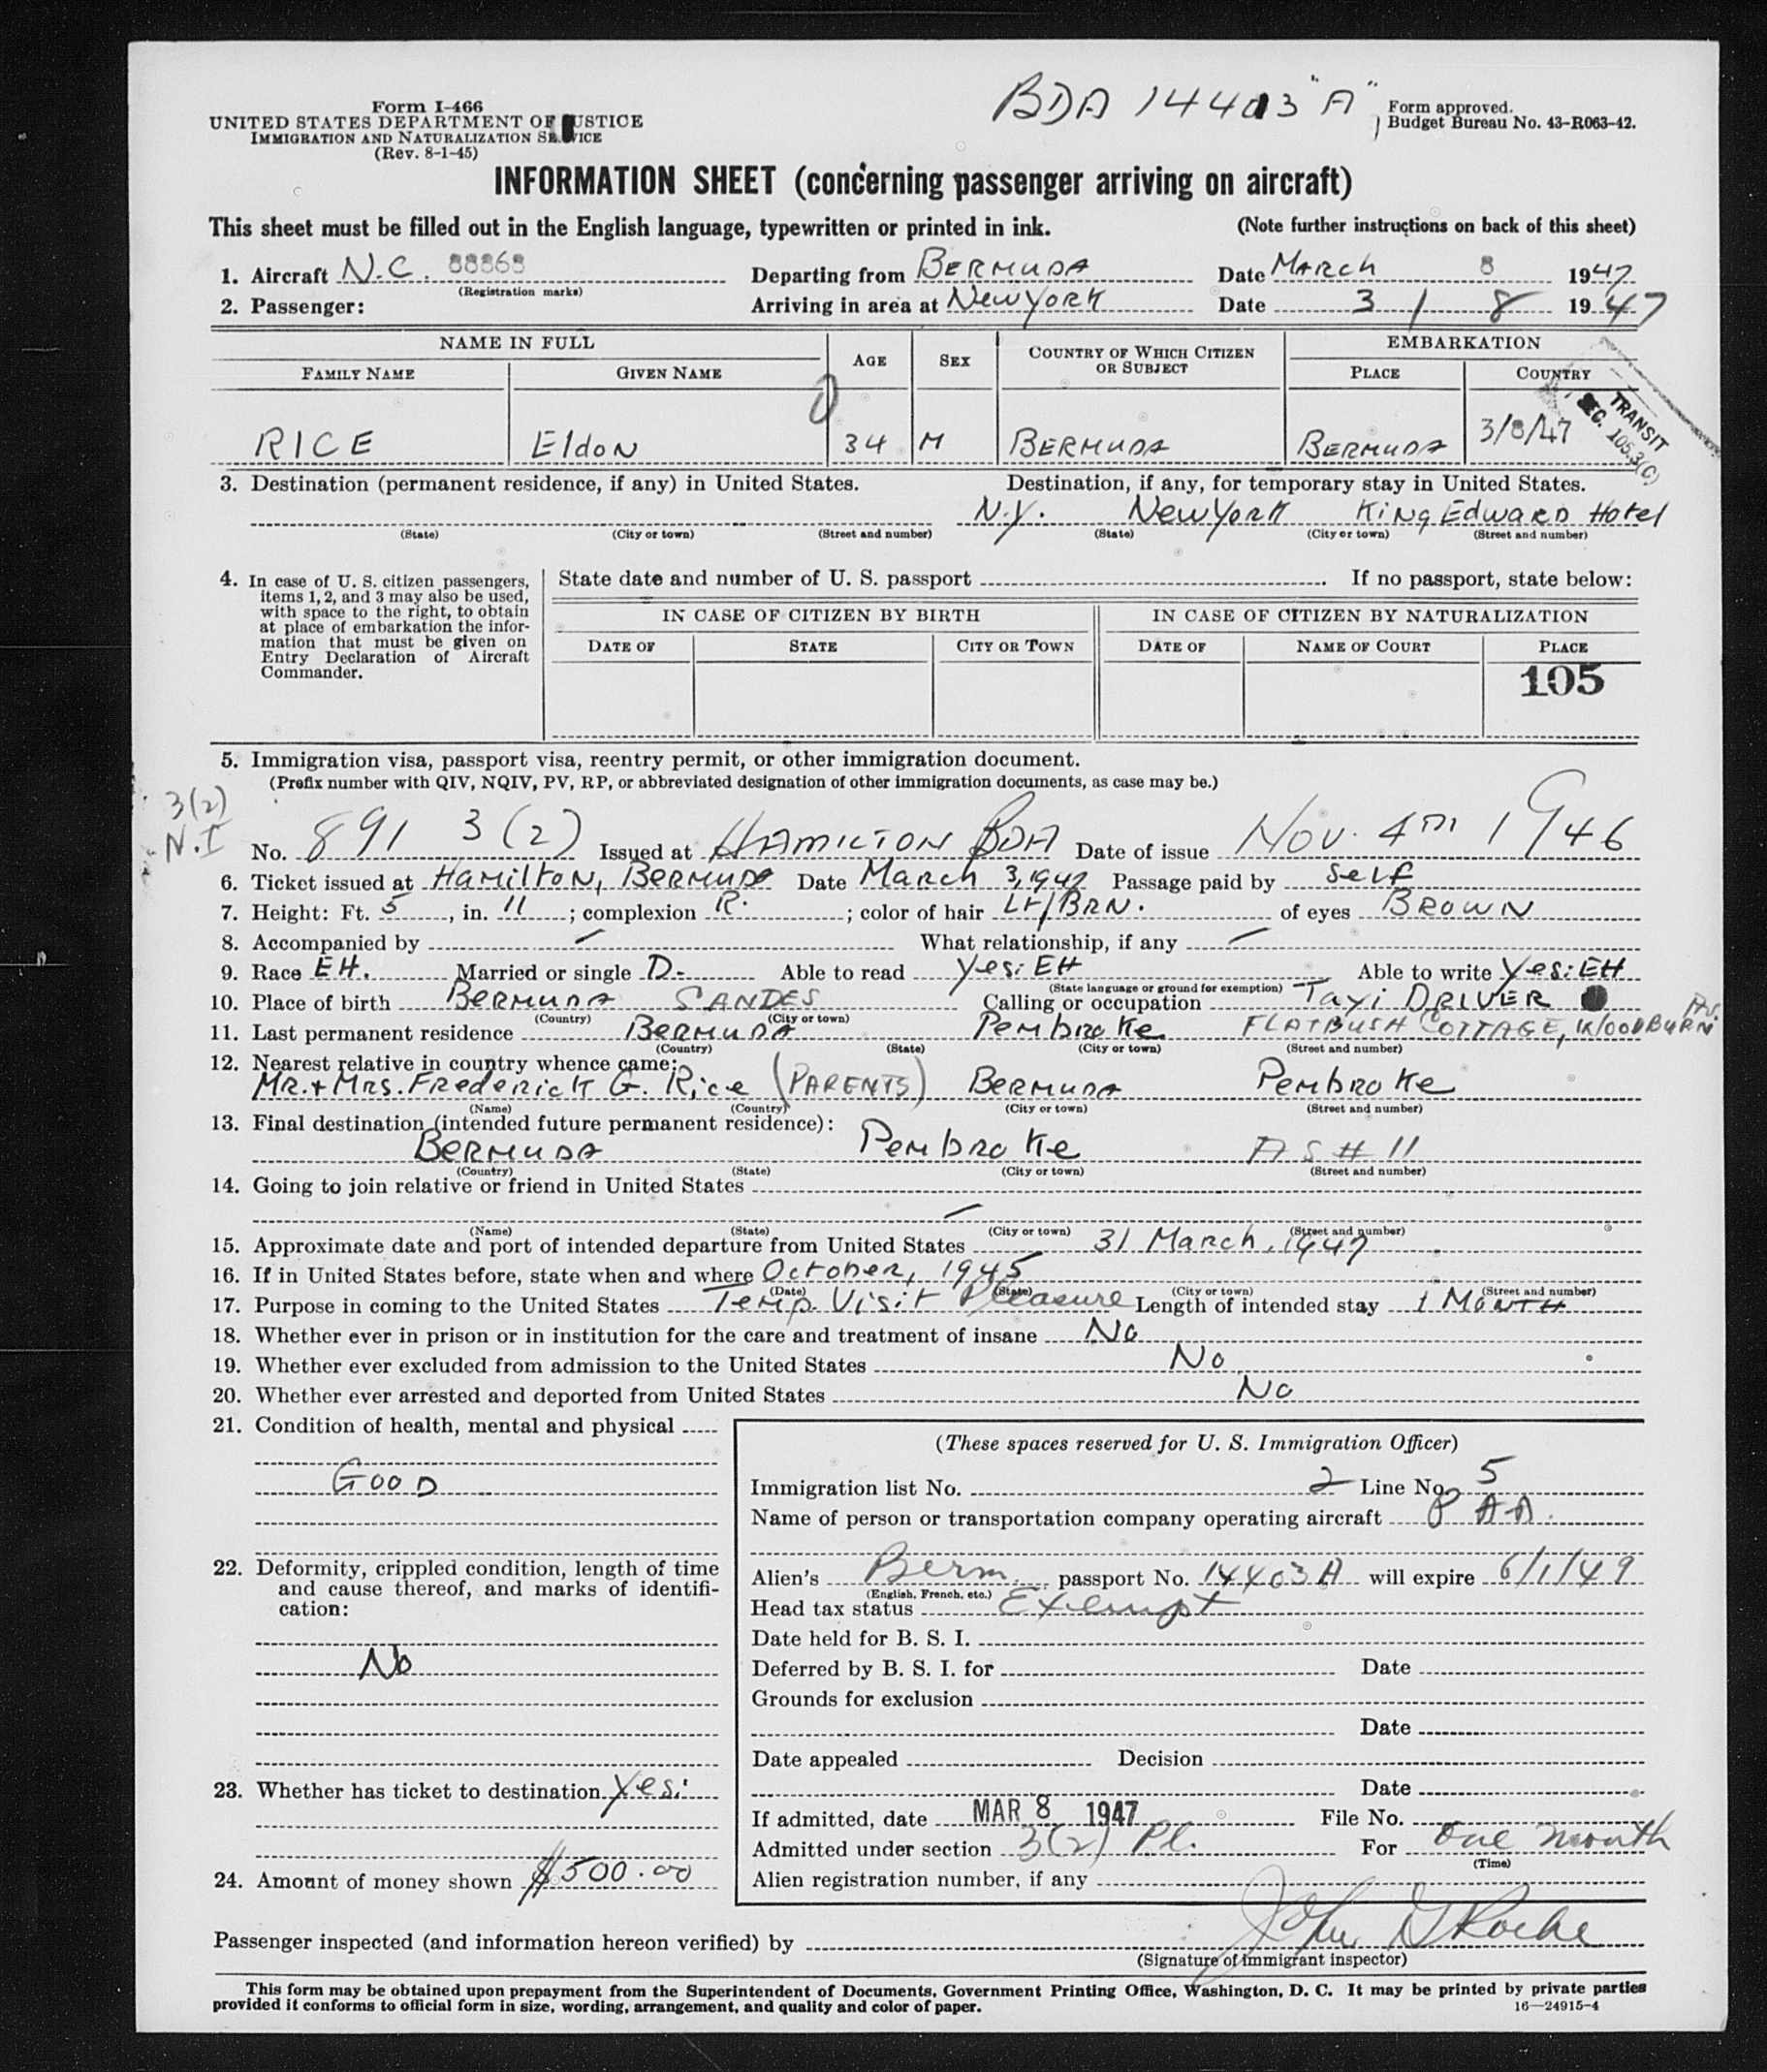 BDA 14403 "A"
Form I-466
UNITED STATES DEPARTMENT OF JUSTICE
IMMIGRATION AND NATURALIZATION SERVICE
(Rev. 8-1-45)
Form approved.
Budget Bureau No. 43-R063-42.
INFORMATION SHEET (concerning passenger arriving on aircraft)
This sheet must be filled out in the English language, typewritten or printed in ink. (Note further instructions on back of this sheet)
1. Aircraft N.C. 88868 Departing from BERMUDA Date MARCH 8 1947
(Registration marks)
2. Passenger: Arriving in area at New York Date 3 / 8 1947
NAME IN FULL AGE SEX COUNTRY OF WHICH CITIZEN OR SUBJECT EMBARKATION
FAMILY NAME GIVEN NAME PLACE COUNTRY
TRANSIT
SEC. 105.3(C)
RICE EldoN 34 M BERMUDA BERMUDA 3/8/47
3. Destination (permanent residence, if any) in United States. Destination, if any, for temporary stay in United States.
N.Y. New York King Edward Hotel
(State) (City or town) (Street and number) (State) (City or town) (Street and number)
4. In case of U. S. citizen passengers, items 1, 2, and 3 may also be used, with space to the right, to obtain at place of embarkation the information that must be given on Entry Declaration of Aircraft Commander.
State date and number of U. S. passport . If no passport, state below:
IN CASE OF CITIZEN BY BIRTH IN CASE OF CITIZEN BY NATURALIZATION
DATE OF STATE CITY OR TOWN DATE OF NAME OF COURT PLACE
105
5. Immigration visa, passport visa, reentry permit, or other immigration document.
(Prefix number with QIV, NQIV, PV, RP, or abbreviated designation of other immigration documents, as case may be.)
3(2)
N.I
No. 891 3(2) Issued at HAMILTON BDA Date of issue Nov. 4TH 1946
6. Ticket issued at Hamilton, Bermuda Date March 3, 1947 Passage paid by Self
7. Height: Ft. 5, in. 11; complexion R.; color of hair Lt/BRN. of eyes BROWN
8. Accompanied by — What relationship, if any —
9. Race EH. Married or single D- Able to read Yes: EH Able to write Yes: EH
(State language or ground for exemption)
10. Place of birth BERMUDA SANDES Calling or occupation Taxi DRIVER
(Country) (City or town)
11. Last permanent residence BERMUDA Pembroke FLATBUSH COTTAGE, WOODBURN
(Country) (State) (City or town) (Street and number)
12. Nearest relative in country whence came:
MR. + MRS. Frederick G. Rice (PARENTS) BERMUDA Pembroke
(Name) (Country) (City or town) (Street and number)
13. Final destination (intended future permanent residence):
BERMUDA Pembroke AS # 11
(Country) (State) (City or town) (Street and number)
14. Going to join relative or friend in United States
—
(Name) (State) (City or town) (Street and number)
15. Approximate date and port of intended departure from United States 31 March, 1947
16. If in United States before, state when and where October, 1945
(Date) (State) (City or town) (Street and number)
17. Purpose in coming to the United States Temp. Visit Pleasure Length of intended stay 1 MONTH
18. Whether ever in prison or in institution for the care and treatment of insane No
19. Whether ever excluded from admission to the United States No
20. Whether ever arrested and deported from United States No
21. Condition of health, mental and physical
GOOD
22. Deformity, crippled condition, length of time and cause thereof, and marks of identification:
No
23. Whether has ticket to destination Yes:
24. Amount of money shown $500.00
(These spaces reserved for U. S. Immigration Officer)
Immigration list No. 2 Line No. 5
Name of person or transportation company operating aircraft P AA.
Alien's Berm. passport No. 14403A will expire 6/1/49
(English, French, etc.)
Head tax status Exempt
Date held for B. S. I.
Deferred by B. S. I. for Date
Grounds for exclusion
Date
Date appealed Decision
Date
If admitted, date MAR 8 1947 File No.
Admitted under section 3(2) Pl. For One month
(Time)
Alien registration number, if any
Passenger inspected (and information hereon verified) by John D Roche
(Signature of immigrant inspector)
This form may be obtained upon prepayment from the Superintendent of Documents, Government Printing Office, Washington, D. C. It may be printed by private parties
provided it conforms to official form in size, wording, arrangement, and quality and color of paper. 16—24915-4